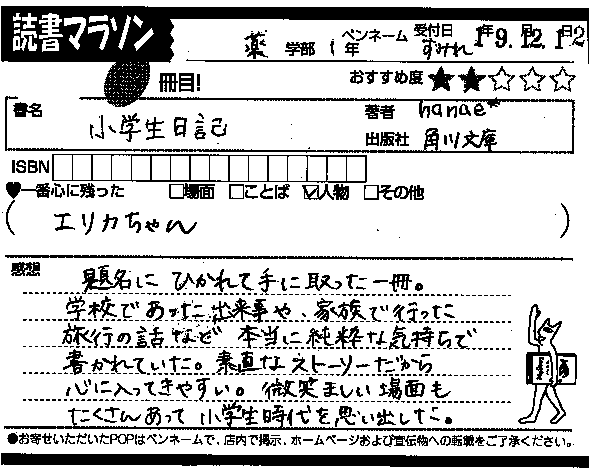 読書マラソン
薬 学部 1年 ペンネーム すみれ 受付日 1年9.月12.1日2
冊目! おすすめ度 ★★☆☆☆
書名 小学生日記 著者 hanae*
出版社 角川文庫
ISBN
♥一番心に残った □場面 □ことば ☑人物 □その他
(エリカちゃん)
感想
題名に ひかれて手に取った一冊。
学校であった出来事や、家族で行った
旅行の話など 本当に純粋な気持ちで
書かれていた。素直なストーリーだから
心に入ってきやすい。微笑ましい場面も
たくさんあって小学生時代を思い出した。
●お寄せいただいたPOPはペンネームで、店内で掲示、ホームページおよび宣伝物への転載をご了承ください。